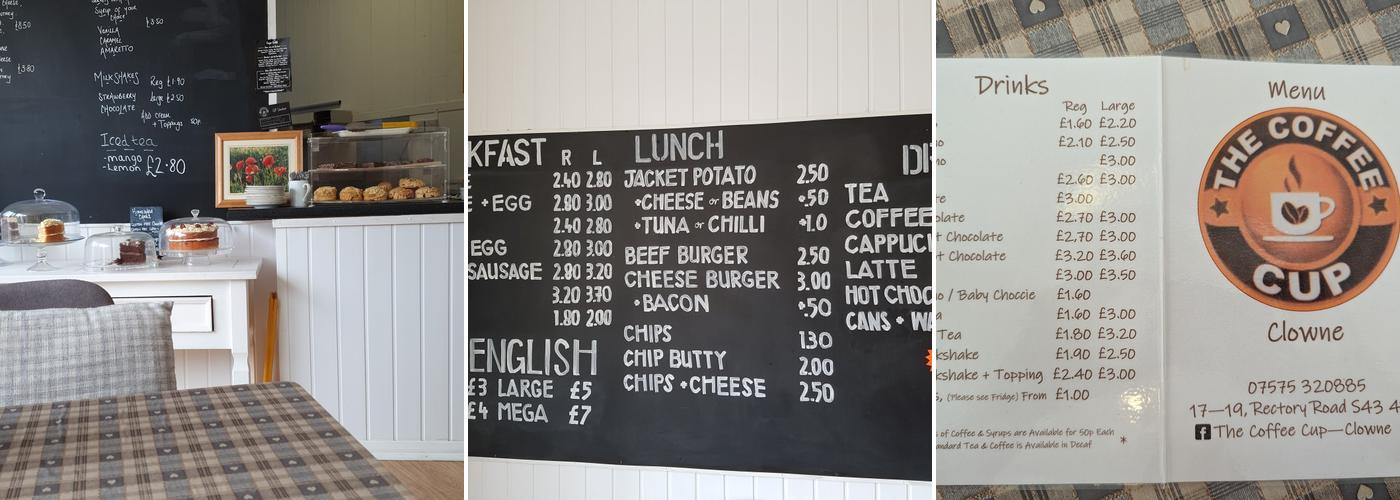 £3.50
£3.80
Syrup of your
choice
£3.50
Vanilla
Caramel
Amaretto
Milkshakes Reg £1.90
Strawberry large £2.50
Chocolate
Add cream
+ Toppings 50p
Iced tea
-mango
-Lemon £2.80
KFAST R L
2.40 2.80
E + EGG 2.80 3.00
2.40 2.80
EGG 2.80 3.00
SAUSAGE 2.80 3.20
3.20 3.70
1.80 2.00
ENGLISH
£3 LARGE £5
£4 MEGA £7
LUNCH
JACKET POTATO 2.50
+CHEESE or BEANS +.50
+TUNA or CHILLI +1.0
BEEF BURGER 2.50
CHEESE BURGER 3.00
+BACON +.50
CHIPS 1.30
CHIP BUTTY 2.00
CHIPS +CHEESE 2.50
DR
TEA
COFFEE
CAPPUC
LATTE
HOT CHOC
CANS + WA
Drinks
Reg Large
£1.60 £2.20
£2.10 £2.50
no £3.00
£2.60 £3.00
re £3.00
olate £2.70 £3.00
t Chocolate £2.70 £3.00
t Chocolate £3.20 £3.60
£3.00 £3.50
o / Baby Choccie £1.60
£1.60 £3.00
Tea £1.80 £3.20
kshake £1.90 £2.50
kshake + Topping £2.40 £3.00
s, (Please see Fridge) From £1.00
s of Coffee & Syrups are Available for 50p Each
andard Tea & Coffee is Available in Decaf *
Menu
THE COFFEE
CUP
Clowne
07575 320885
17—19, Rectory Road S43 4
The Coffee Cup—Clowne